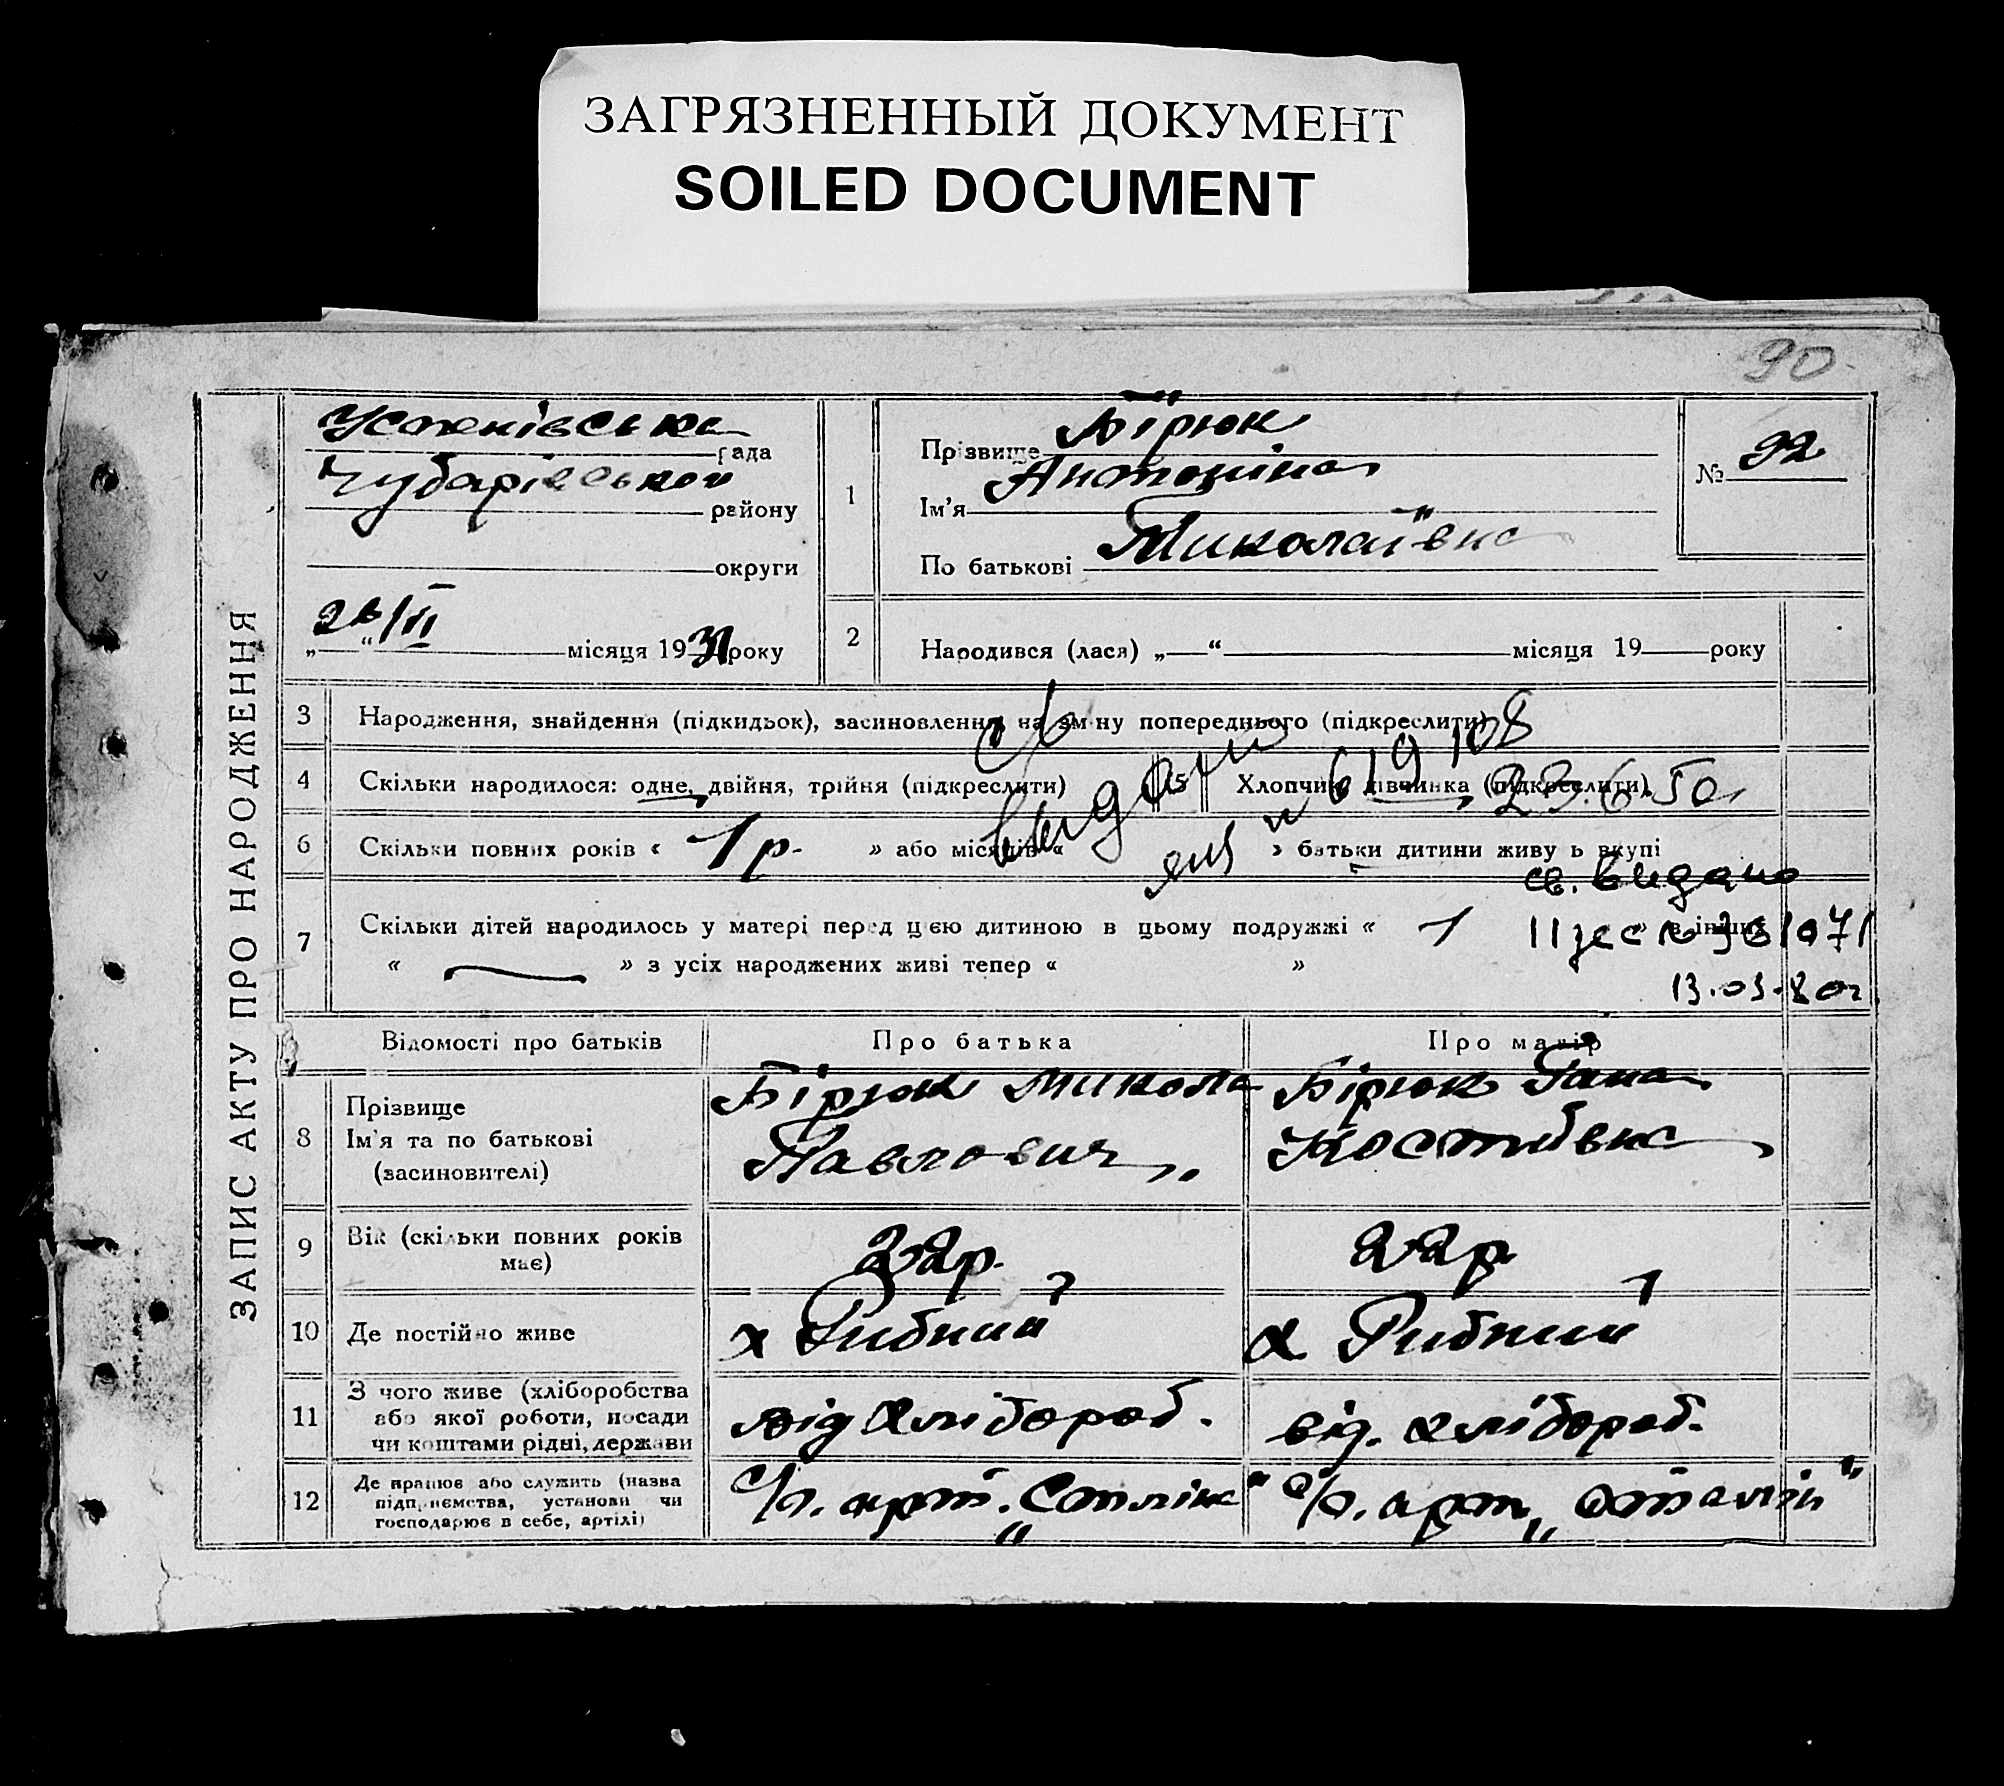 ЗАГРЯЗНЕННЫЙ ДОКУМЕНТ
SOILED DOCUMENT
90
ЗАПИС АКТУ ПРО НАРОДЖЕННЯ
Успенівська рада
Чубарівський району
округи
місяця 1931 року
1
Прізвище Бірюк
Ім'я Антоніна
По батькові Миколаївна
№ 92
2
Народився (лася) „ “ місяця 19 року
3 Народження, знайдення (підкидьок), засиновлення, на зміну попереднього (підкреслити)
4 Скільки народилося: одне, двійня, трійня (підкреслити)
5 Хлопчик, дівчинка (підкреслити)
23.6.50
6 Скільки повних років « 1 р. » або місяців « » батьки дитини живуть вкупі
св. видано
7 Скільки дітей народилось у матері перед цією дитиною в цьому подружжі « 1 » в інших
« — » з усіх народжених живі тепер « »
13.03.80г
Відомості про батьків Про батька Про матір
8 Прізвище
Ім'я та по батькові
(засиновителі)
Бірюк Микола
Павлович
Бірюк Гана
Костівна
9 Вік (скільки повних років
має)
22р.
22р
10 Де постійно живе
х Рибний
х Рибний
11 З чого живе (хліборобства
або якої роботи, посади
чи коштами рідні, держави
від хлібороб.
від. хлібороб.
12 Де працює або служить (назва
підприємства, установи чи
господарює в себе, артілі)
с/г. арт.
с/г. арт